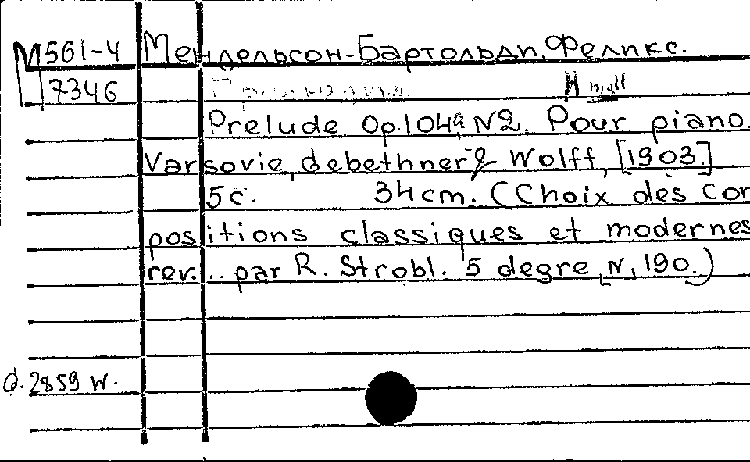 М561-4 Мендельсон-Бартольди, Феликс.
7346
Prelude Op.104a N2. Pour piano.
Varsovie, debethner & Wolff, [1903.]
5c. 34cm. (Choix des Com
positions classiques et modernes
rev... par R. Strobl. 5 degre, N, 190.)
d. 2859 W.